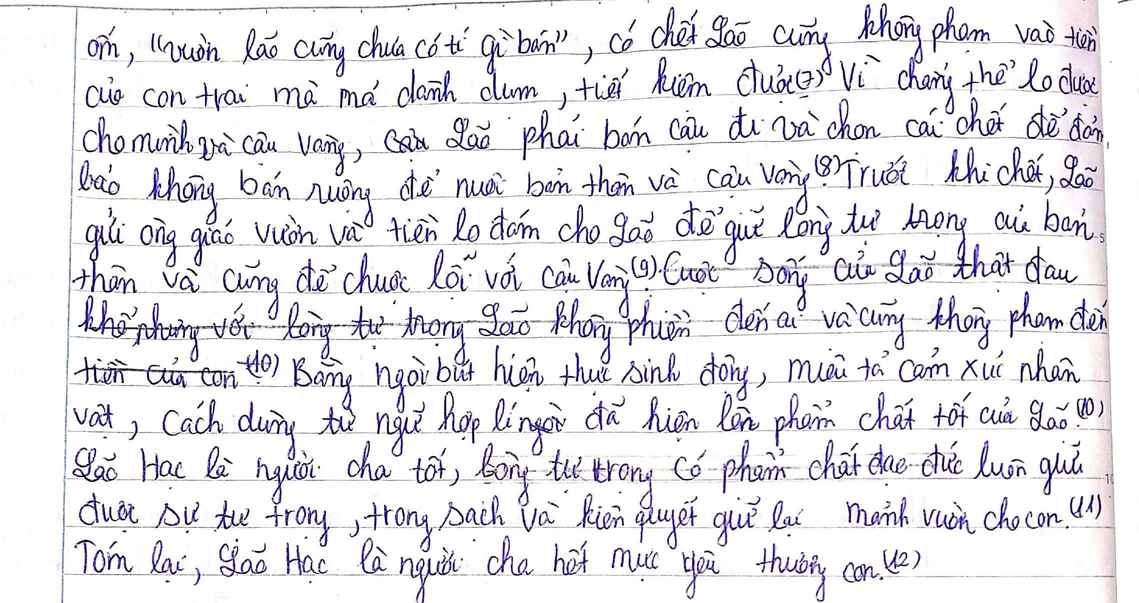 ốm, "vườn lão cũng chưa có tí gì bán", có chết Lão cũng không phạm vào tiền
của con trai mà má dành dụm, tiết kiệm được(7) Vì chẳng thể lo được
cho mình và cậu Vàng, Lão phải bán cậu đi và chọn cái chết để đảm
bảo không bán ruộng để nuôi bản thân và cậu Vàng.(8) Trước khi chết, Lão
gửi ông giáo vườn và tiền lo đám cho Lão để giữ lòng tự trọng của bản
thân và cũng để chuộc lỗi với cậu Vàng.(9) Cuộc sống của Lão thật đau
khổ nhưng với lòng tự trọng Lão không phiền đến ai và cũng không phạm đến
tiền của con.(10) Bằng ngòi bút hiện thực sinh động, miêu tả cảm xúc nhân
vật, cách dùng từ ngữ hợp lí đã hiện lên phẩm chất tốt của Lão.(10)
Lão Hạc là người cha tốt, lòng tự trọng có phẩm chất đạo đức luôn giữ
được sự tự trọng, trong sạch và kiên quyết giữ lại mảnh vườn cho con.(11)
Tóm lại, Lão Hạc là người cha hết mực yêu thương con.(12)